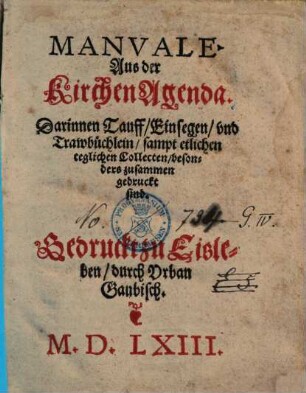 MANVALE.
Aus der
Kirchen Agenda.
Darinnen Tauff/Einsegen/vnd
Trawbüchlein/sampt etlichen
teglichen Collecten/beson-
ders zusammen
gedruckt
sind.
No. 734 G. IV.
Gedruckt zu Eisle-
ben/durch Vrban
Gaubisch.
M. D. LXIII.